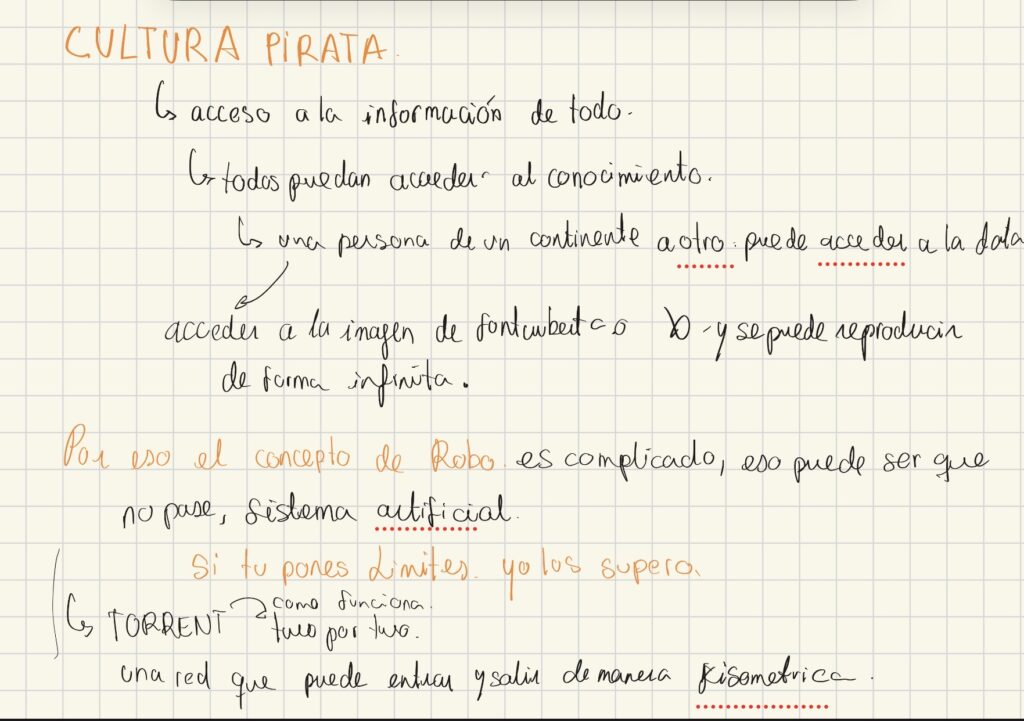 CULTURA PIRATA.
↳ acceso a la información de todo.
↳ todos puedan acceder al conocimiento.
↳ una persona de un continente a otro. puede acceder a la data
acceder a la imagen de y se puede reproducir
de forma infinita.
Por eso el concepto de Robo es complicado, eso puede ser que
no pase, sistema artificial.
Si tu pones Limites. yo los supero.
↳ TORRENT como funciona.
por
una red que puede entrar y salir de manera